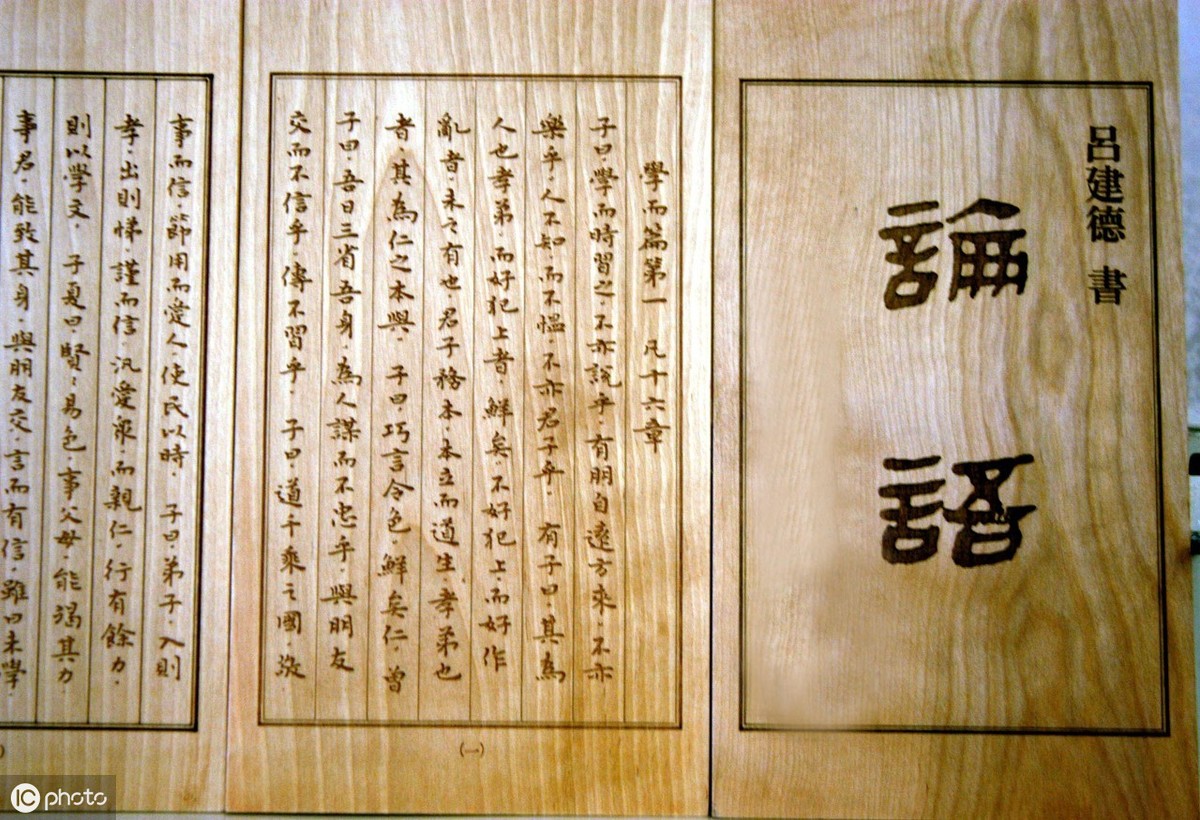 呂建德 書
論語
學而篇第一 凡十六章
子曰.學而時習之.不亦說乎.有朋自遠方來.不亦
樂乎.人不知.而不慍.不亦君子乎. 有子曰.其為
人也孝弟.而好犯上者.鮮矣.不好犯上.而好作
亂者.未之有也.君子務本.本立而道生.孝弟也
者.其為仁之本與. 子曰.巧言令色.鮮矣仁.曾
子曰.吾日三省吾身.為人謀而不忠乎.與朋友
交而不信乎.傳不習乎. 子曰.道千乘之國.敬
(一)
事而信.節用而愛人.使民以時. 子曰.弟子.入則
孝.出則悌.謹而信.汎愛眾.而親仁.行有餘力.
則以學文. 子夏曰.賢:易色.事父母.能竭其力.
事君.能致其身.與朋友交.言而有信.雖曰未學
IC photo